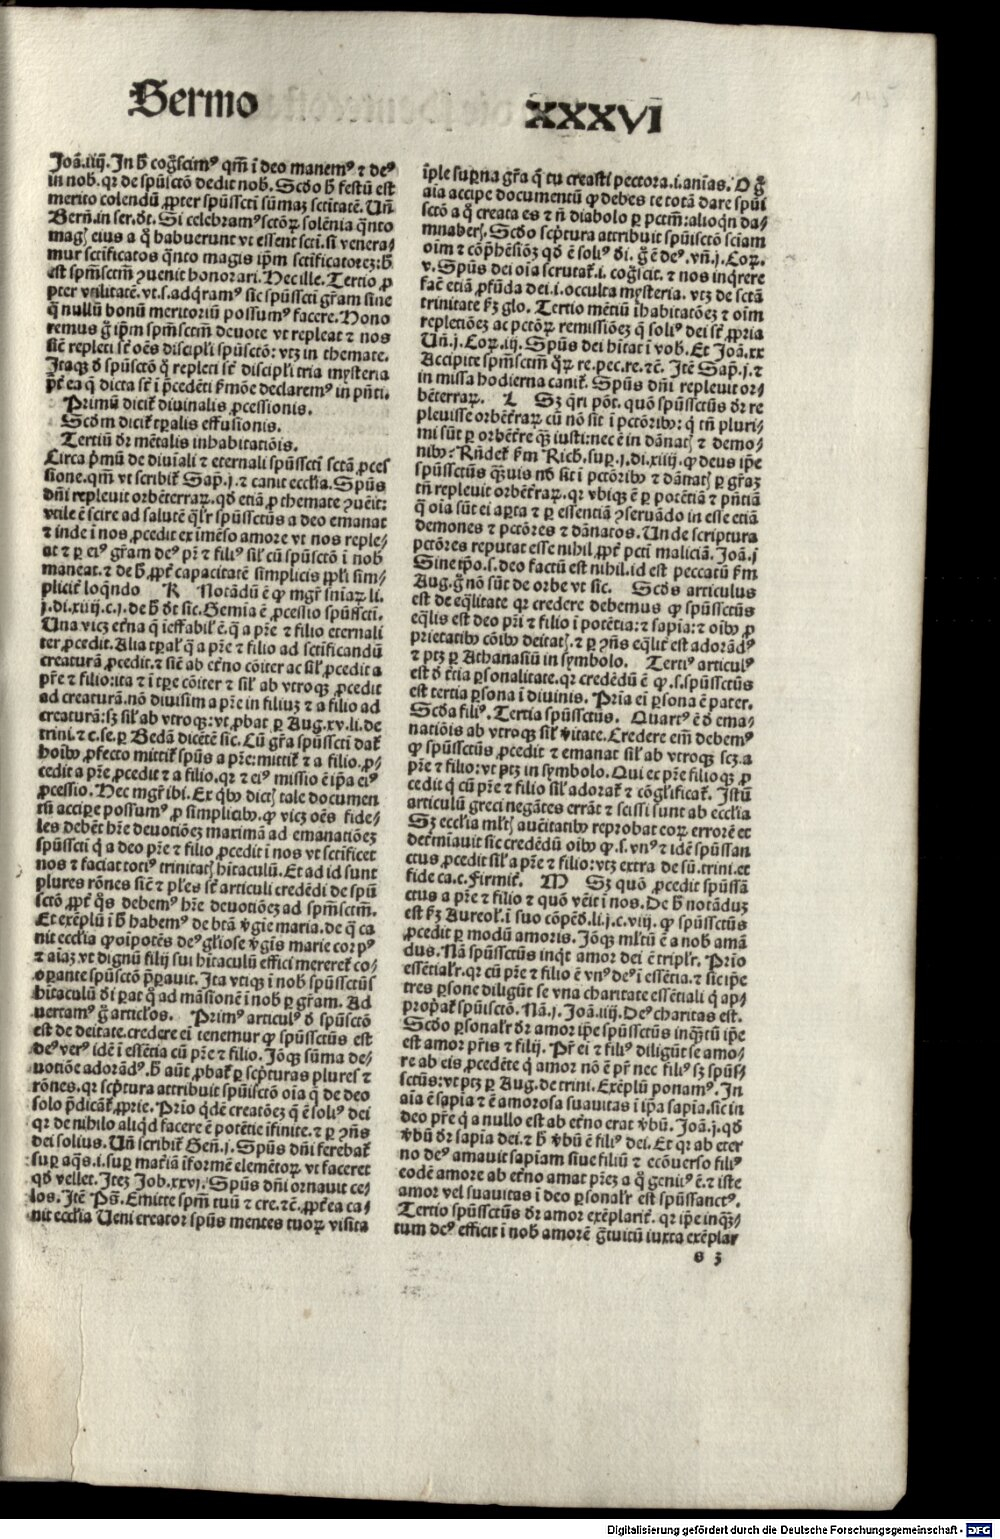 Sermo
XXXVI
Joā.iiij. In h̄ cog̃scim⁹ qm̄ ī deo manem⁹ ⁊ de⁹
in nob. qr de spūsctō dedit nob. Scdo h̄ festū est
merito colendū ꝓpter spūsscti sūmaꝫ sctitatē. Uñ
Bern̄. in ser. dt. Si celebram⁹ sctoꝝ solēnia q̄nto
mag̃ eius a q̊ habuerunt vt essent scti. si venera⸗
mur sctificatos q̄nto magis ip̄m sctificatoreꝫ: h̄
est spm̄sctm̄ ꝯuenit honorari. Hec ille. Tertio ꝓ
pter vtilitatē. vt.s. adq̄ram⁹ sic spūsscti gr̄am sine
q̄ nullū bonū meritoriū possum⁹ facere. Hono
remus g̊ ip̄m spm̄sctm̄ deuote vt repleat ⁊ nos
sic̄ repleti sr̄ oēs discipl̄i spūsctō: vtꝫ in themate.
Itaqꝫ d̄ spūsctō q̊ repleti sr̄ discipl̄i tria mysteria
p̄r̄ ea q̄ dicta sr̄ ī p̄cedēti ẜmōe declarem⁹ in pn̄ti.
Primū dicit̄ diuinalis ꝓcessionis.
Scd̄m dicit̄ tꝑalis effusionis.
Tertiū dr̄ mētalis inhabitatiōis.
Circa p̄mū de diuinali ⁊ eternali spūsscti sctā ꝓces
sione. qm̄ vt scribit̄ Sap̄.j. ⁊ canit eccl̄ia. Spūs
dn̄i repleuit orbēterraꝝ. qd̄ etiā ꝓ themate ꝯuēit:
vtile ē scire ad salutē q̄lr̄ spūssctūs a deo emanat
⁊ inde ī nos ꝓcedit ex imēso amore vt nos reple⸗
at ⁊ ꝑ ei⁹ gr̄am de⁹ pr̄ ⁊ fili⁹ sil̄ cū spūsctō ī nob
maneat. ⁊ de h̄ ꝓpt̄ capacitatē simplicis ꝓpl̄i sim⸗
plicit̄ loq̄ndo K Notādū ē ꝙ mgr̄ sn̄iaꝝ li.
j.di.xiiij.c.j. de h̄ dt sic. Gemia ē ꝓcessio spūsscti.
Una vicꝫ et̄na q̄ ieffabil̄ ē. q̄ a pr̄e ⁊ filio eternali
ter ꝓcedit. Alia tꝑal̄ q̄ a pr̄e ⁊ filio ad sctificandū
creaturā ꝓcedit. ⁊ sic̄ ab et̄no cōiter ac sil̄ ꝓcedit a
pr̄e ⁊ filio: ita ⁊ ī tꝑe cōiter ⁊ sil̄ ab vtroqꝫ ꝓcedit
ad creaturā. nō diuisim a pr̄e in filiuꝫ ⁊ a filio ad
creaturā: sꝫ sil̄ ab vtroqꝫ: vt ꝓbat ꝑ Aug.xv.li.de
trini. ⁊ c.se. ꝑ Bedā dicētē sic. Cū gr̄a spūsscti dat̄
hoībꝰ ꝓfecto mittit̄ spūs a pr̄e: mittit̄ ⁊ a filio. ꝓ⸗
cedit a pr̄e ꝓcedit ⁊ a filio. qr ⁊ ei⁹ missio ē ip̄a ei⁹
ꝓcessio. Hec mgr̄ ibi. Ex qͥbꝰ dict̃ tale documen
tū accipe possum⁹ ꝓ simplicibꝰ. ꝙ vicꝫ oēs fide⸗
les debēt hr̄e deuotiōeꝫ maximā ad emanatiōeꝫ
spūsscti q̄ a deo pr̄e ⁊ filio ꝓcedit ī nos vt sctificet
nos ⁊ faciat toti⁹ trinitat̃ hītaculū. Et ad id sunt
plures rōnes sic̄ ⁊ pl̄es sr̄ articuli credēdi de spū
sctō ꝓpt̄ q̊s debem⁹ hr̄e deuotiōeꝫ ad spm̄sctm̄.
Et exēplū ī h̄ habem⁹ de btā ṽgīe maria. de q̄ ca
nit eccl̄ia ꝙ oīpotēs de⁹ gl̄iose ṽgīs marie corp⁹
⁊ aīaꝫ vt dignū filij sui hītaculū effici mereret̄ co⸗
oꝑante spūsctō p̄ꝑauit. Ita vtiqꝫ ī nob spūssctūs
hītaculū d̄ ꝑat q̊ ad māsionē ī nob ꝑ gr̄am. Ad
vertam⁹ g̊ articl̄os. Prim⁹ articul⁹ d̄ spūsctō
est de deitate. credere ei̅ tenemur ꝙ spūssctūs est
de⁹ ver⁹ idē ī essētia cū pr̄e ⁊ filio. Jōqꝫ sūma de⸗
uotiōe adorād⁹. h̄ aūt ꝓbat̄ ꝑ sc̄pturas plures ⁊
rōnes. qr sc̄ptura attribuit spūisctō oīa q̄ de deo
solo p̄dicāt̄ ꝓprie. Prīo qͥdē creatōeꝫ q̄ ē soli⁹ dei
qr de nihilo aliqd̄ facere ē potētie īfinite. ⁊ ꝑ ꝯn̄s
dei solius. Uñ scribit̄ Gen̄.j. Spūs dn̄i ferebat̄
suꝑ aq̄s.i. suꝑ mat̄iā īformē elemētoꝝ vt faceret
qd̄ vellet. Iteꝫ Job.xxvj. Spūs dn̄i ornauit ce⸗
los. Itē Ps̄. Emitte spm̄ tuū ⁊ cre. ⁊c̄. ꝓpt̄ ea ca⸗
nit eccl̄ia Ueni creator spūs mentes tuoꝝ visita
īple suꝑna gr̄a q̄ tu creasti pectora.i. anīas. O g̊
aīa accipe documentū ꝙ debes te totā dare spūi
sctō a q̊ creata es ⁊ nō diabolo ꝑ pctm̄: alioqn̄ da⸗
mnaber̃. Scdo sc̄ptura attribuit spūisctō sciam
oīm ⁊ cōp̄hēsiōꝫ qd̄ ē soli⁹ di̅. g̊ ē de⁹. vñ.j. Coꝝ.
v. Spūs dei oīa scrutat̄.i. cog̃scit. ⁊ nos inqͥrere
fac̄ etiā ꝓfūda dei.i. occulta mysteria. vtꝫ de sctā
trinitate ẜꝫ glo. Tertio mētiū īhabitatōeꝫ ⁊ oīm
repletiōeꝫ ac pctōꝝ remissiōeꝫ q̄ soli⁹ dei sr̄ ꝓpria
Uñ.j. Coꝝ.iij. Spūs dei hītat ī vob. Et Joā.xx
Accipite spm̄sctm̄ qͥꝝ re.pec.re.⁊c̄. Itē Sap̄.j. ⁊
in missa hodierna canit̄. Spūs dn̄i repleuit or⸗
bēterraꝝ. L Sꝫ qͥri pōt. quō spūssctūs dr̄ re
pleuisse orbēt̄raꝝ cū nō sit ī pctōribꝰ: q̄ tn̄ pluri⸗
mi sūt ꝑ orbēt̄re q̄ꝫ iusti: nec ē in dānat̃ ⁊ demo⸗
nibꝰ. Rn̄det̄ ẜm Rich. suꝑ.j.di.xiiij. ꝙ deus ip̄e
spūssctūs q̄ꝫuis nō sit ī pctōribꝰ ⁊ dānat̃ ꝑ gr̄aꝫ
tn̄ repleuit orbēt̄raꝝ. qr vbiqꝫ ē ꝑ potētiā ⁊ pn̄tiā
q̄ oīa sūt ei aꝑta ⁊ ꝑ essentiā ꝯseruādo in esse etiā
demones ⁊ pctōres ⁊ dānatos. Unde scriptura
pctōres reputat esse nihil. ꝓpt̄ pcti maliciā. Joā.j
Sine ip̄o.s. deo factū est nihil. id est peccatū ẜm
Aug. g̊ nō sūt de orbe vt sic. Scds̄ articulus
est de eq̄litate qr credere debemus ꝙ spūssctūs
eq̄lis est deo pr̄i ⁊ filio ī potētia: ⁊ sapīa: ⁊ oībꝰ ꝓ
prietatibꝰ cōibꝰ deitat̃. ⁊ ꝑ ꝯn̄s eq̄lit̄ est adorād⁹
⁊ ptꝫ ꝑ Athanasiū in symbolo. Terti⁹ articul⁹
est d̄ t̄tia ꝑsonalitate. qr credēdū ē ꝙ.s. spūssctūs
est tertia ꝑsona ī diuinis. Prīa ei̅ ꝑsona ē pater.
Scda fili⁹. Tertia spūssctūs. Quart⁹ ē d̄ ema⸗
natiōis ab vtroqꝫ sil̄ ṽitate. Credere em̄ debem⁹
ꝙ spūssctūs ꝓcedit ⁊ emanat sil̄ ab vtroqꝫ scꝫ. a
pr̄e ⁊ filio: vt ptꝫ in symbolo. Qui ex pr̄e filioqꝫ ꝓ
cedit q̄ cū pr̄e ⁊ filio sil̄ adorat̄ ⁊ cōgl̄ificat̄. Istū
articulū greci negātes errāt ⁊ scissi sunt ab eccl̄ia
Sꝫ eccl̄ia ml̄t̃ auc̄itatibꝰ reprobat eoꝝ errorē et
det̄mīauit sic credēdū oībꝰ ꝙ.s. vn⁹ ⁊ idē spūssan
ctus ꝓcedit sil̄ a pr̄e ⁊ filio: vtꝫ extra de sū.trini.et
fide ca.c. Firmit̄. M Sꝫ quō ꝓcedit spūssā
ctus a pr̄e ⁊ filio ⁊ quō vēit ī nos. De h̄ notāduꝫ
est ẜꝫ Aureol̄. ī suo cōpēd.li.j.c.viij. ꝙ spūssctūs
ꝓcedit ꝑ modū amoris. Jōqꝫ ml̄tū ē a nob amā
dus. Nā spūssctūs inqͥt amor dei ē tripl̄r. Prīo
essētial̄r. qr cū pr̄e ⁊ filio ē vn⁹ de⁹ ī essētia. ⁊ sic ip̄e
tres ꝑsone diligūt se vna charitate essētiali q̄ ap⸗
ꝓpat̄ spūisctō. Nā.j. Joā.iiij. De⁹ charitas est.
Scdo ꝑsonal̄r dr̄ amor ip̄e spūssctūs inqͥꝫtū ip̄e
est amor pr̄is ⁊ filij. Pr̄ ei̅ ⁊ fili⁹ diligūt se amo⸗
re ab eis ꝓcedēte q̄ amor nō ē pr̄ nec fili⁹ sꝫ spūs⸗
sctūs: vt ptꝫ ꝑ Aug. de trini. Exēplū ponam⁹. In
aīa ē sapīa ⁊ ē amorosa suauitas ī ip̄a sapīa. sic in
deo pr̄e q̄ a nullo est ab et̄no erat ṽbū. Joā.j. qd̄
ṽbū dr̄ sapīa dei. ⁊ h̄ ṽbū ē fili⁹ dei. Et qr ab eter
no de⁹ amauit sapīam siue filiū ⁊ ecōuerso fili⁹
eodē amore ab et̄no amat pr̄eꝫ a q̊ genit⁹ ē. ⁊ iste
amor vel suauitas ī deo ꝑsonal̄r est spūssanct⁹.
Tertio spūssctūs dr̄ amor exēplarit̄. qr ip̄e inqͥꝫ⸗
tum de⁹ efficit ī nob amorē g̊tuitū iuxta exēplar
s 3
Digitalisierung gefördert durch die Deutsche Forschungsgemeinschaft - DFG